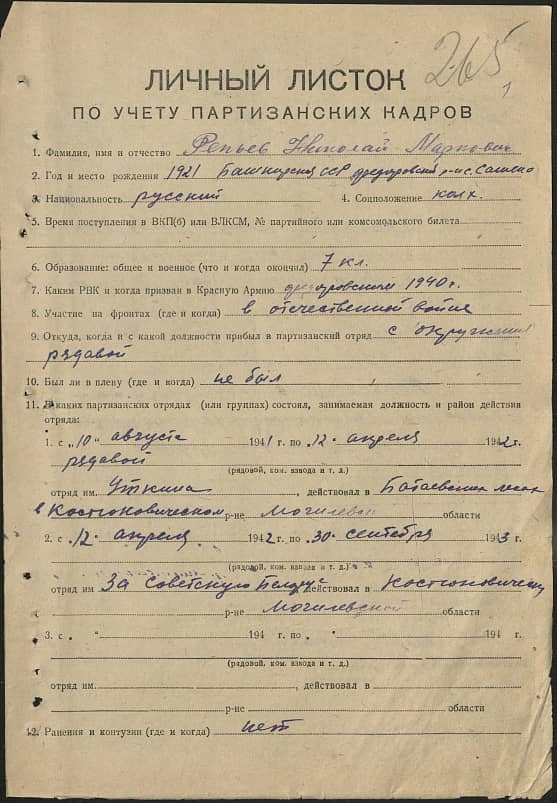 265
ЛИЧНЫЙ ЛИСТОК
ПО УЧЕТУ ПАРТИЗАНСКИХ КАДРОВ
1. Фамилия, имя и отчество Репьев Николай Маркович
2. Год и место рождения 1921 Башкирская ССР Федоровский р-н с.
3. Национальность русский 4. Соцположение колх.
5. Время поступления в ВКП(б) или ВЛКСМ, № партийного или комсомольского билета
6. Образование: общее и военное (что и когда окончил) 7 кл.
7. Каким РВК и когда призван в Красную Армию Федоровским 1940 г.
8. Участие на фронтах (где и когда) в отечественной войне
9. Откуда, когда и с какой должности прибыл в партизанский отряд с окружения
рядовой
10. Был ли в плену (где и когда) не был
11. В каких партизанских отрядах (или группах) состоял, занимаемая должность и район действия
отряда:
1. с „10" августа 1941 г. по „12" апреля 1942 г.
рядовой
(рядовой, ком. взвода и т. д.)
отряд им. Уткина, действовал в Батаевских лесах
в Костюковическом р-не Могилевск области
2. с „12" апреля 1942 г. по „30" сентября 1943 г.
(рядовой, ком. взвода и т. д.)
отряд им За Советскую Белорус действовал в Костюковическом
р-не Могилевской области
3. с „ " 194 г. по „ " 194 г.
(рядовой, ком. взвода и т. д.)
отряд им. , действовал в
р-не области
12. Ранения и контузии (где и когда) нет